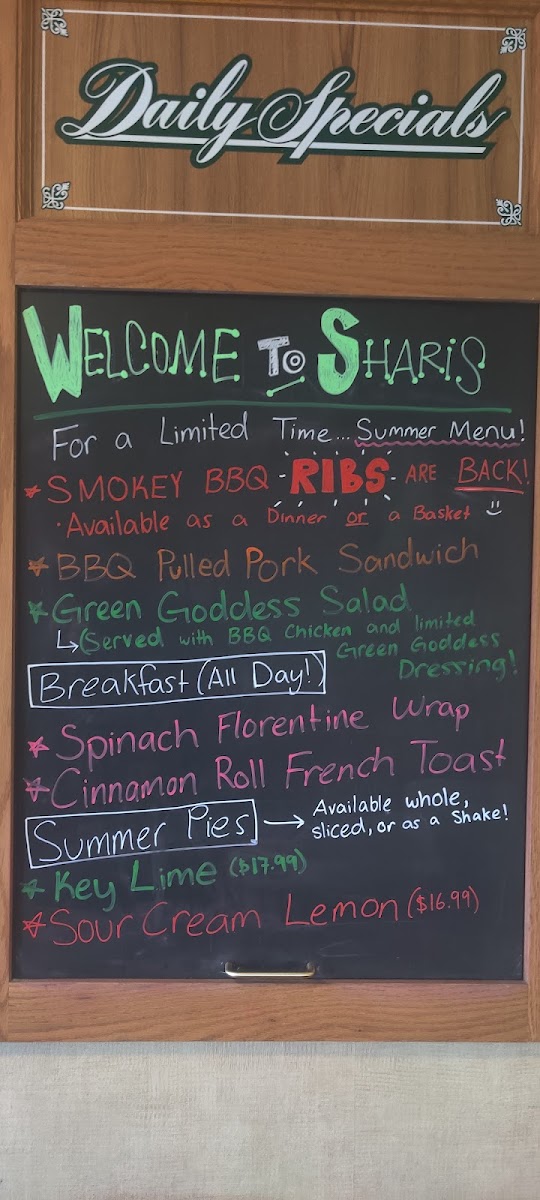 Daily Specials
WELCOME TO SHARIS
For a Limited Time... Summer Menu!
* SMOKEY BBQ -RIBS- ARE BACK!
· Available as a Dinner or a Basket :)
* BBQ Pulled Pork Sandwich
* Green Goddess Salad
↳ (Served with BBQ Chicken and limited
Green Goddess
Dressing!
Breakfast (All Day!)
* Spinach Florentine Wrap
* Cinnamon Roll French Toast
Summer Pies → Available whole,
sliced, or as a Shake!
* Key Lime ($17.99)
* Sour Cream Lemon ($16.99)